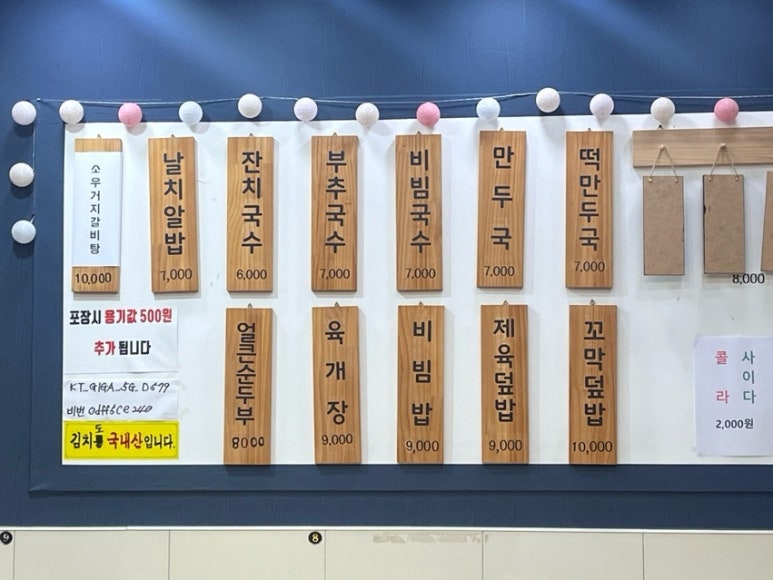 소우거지갈비탕
10,000
날치알밥
7,000
잔치국수
6,000
부추국수
7,000
비빔국수
7,000
만두국
7,000
떡만두국
7,000
8,000
포장시 용기값 500원
추가 됩니다
KT_GIGA_5G_D679
비번 0dff5ce240
김치도 국내산입니다.
얼큰순두부
8000
육개장
9,000
비빔밥
9,000
제육덮밥
9,000
꼬막덮밥
10,000
콜라
사이다
2,000원
9
8